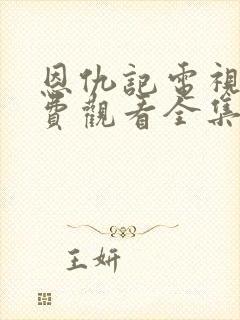 恩仇記電視
費觀看全集
王妍